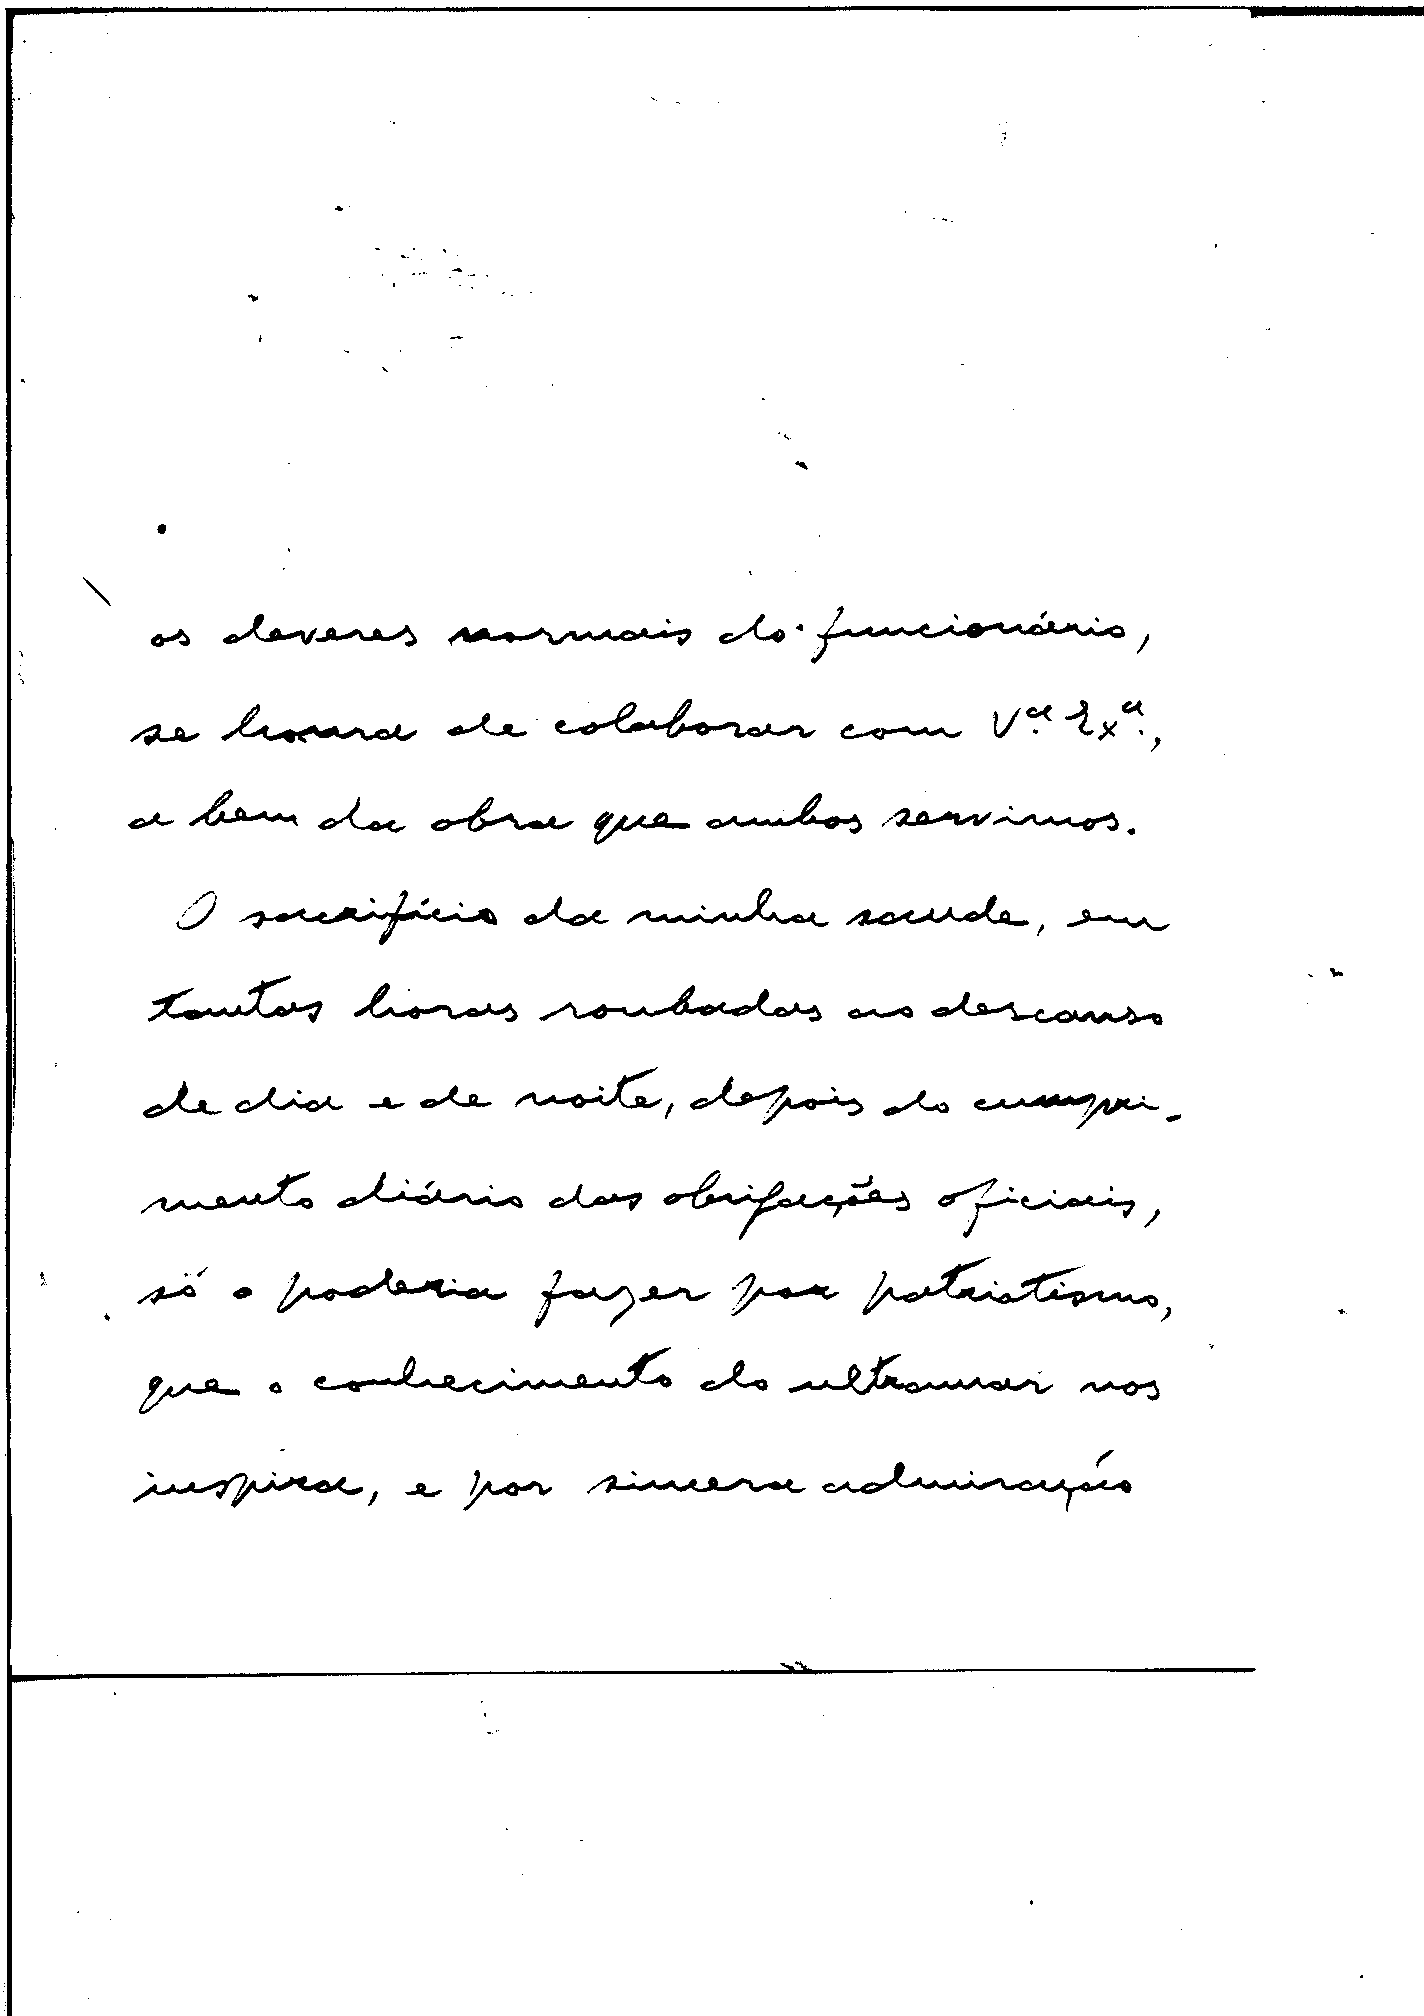 os deveres normais do funcionário,
se honra de colaborar com Vª. Exª.,
a bem da obra que ambos servimos.
O sacrifício da minha saude, em
tantas horas roubadas ao descanso
de dia e de noite, depois do cumpri-
mento diário das obrigações oficiais,
só o poderia fazer por patriotismo,
que o conhecimento do ultramar nos
inspira, e por sincera admiração